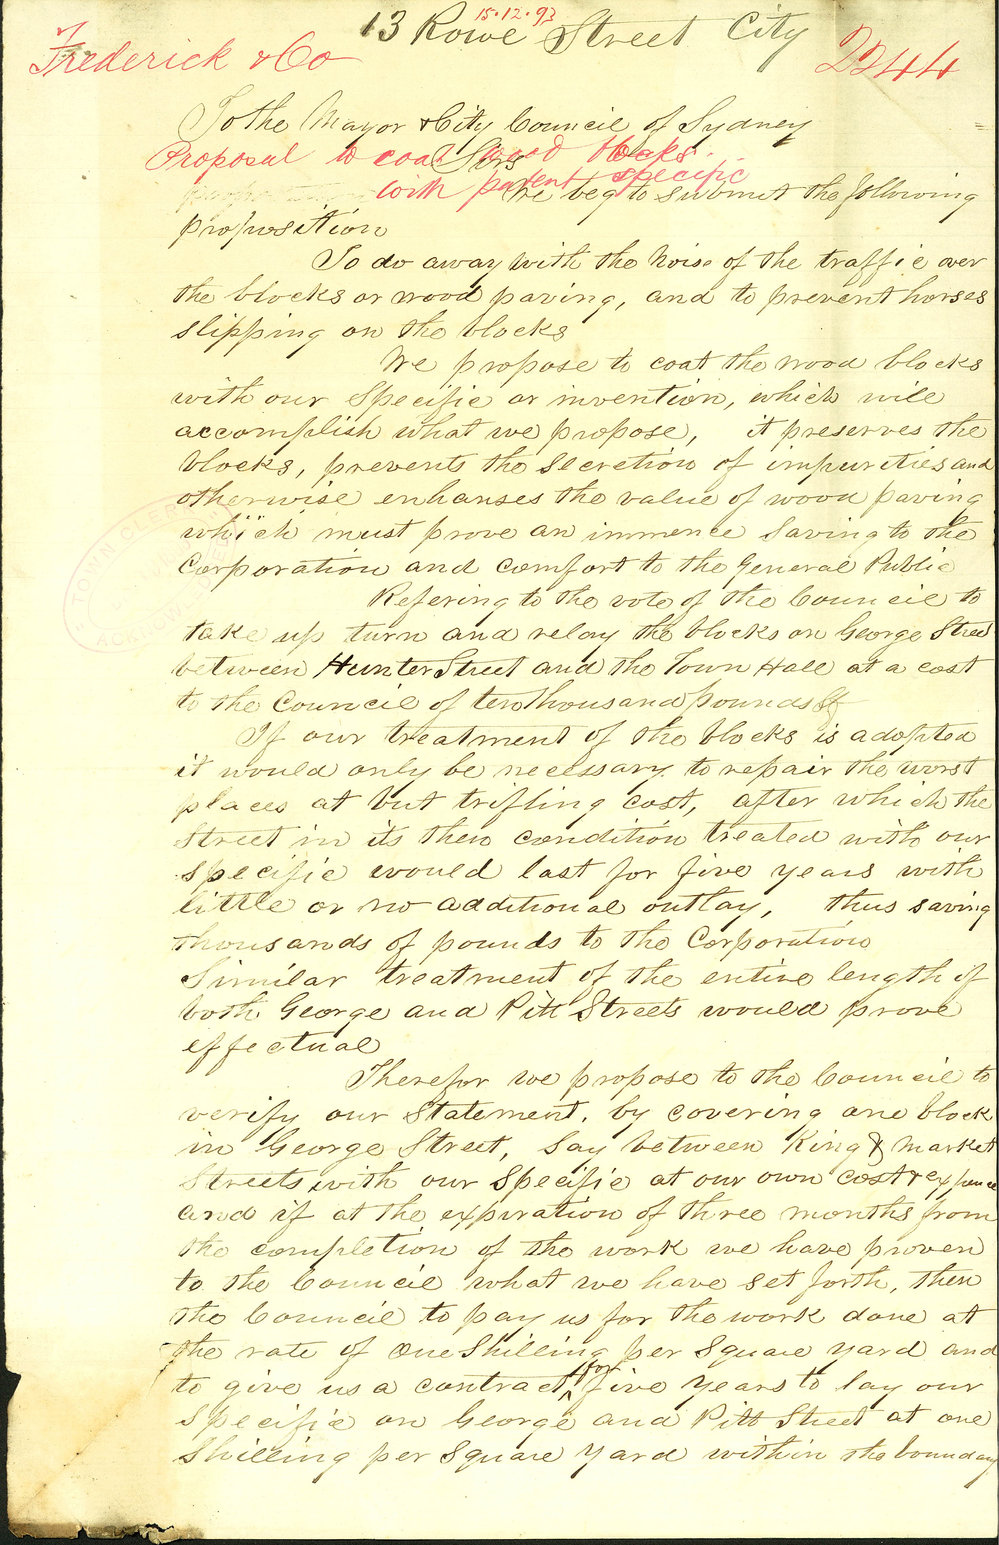 15.12.93
13 Rowe Street City
Frederick & Co
2244
To the Mayor & City Council of Sydney
Proposal to coat wood blocks.
Sirs
with patent specific
We beg to submit the following
proposition
To do away with the Noise of the traffic over
the blocks or wood paving, and to prevent horses
slipping on the blocks
We propose to coat the wood blocks
with our Specific or invention, which will
accomplish what we propose, it preserves the
blocks, prevents the Secretion of impurities and
otherwise enhanses the value of wood paving
which must prove an immence Saving to the
Corporation and comfort to the General Public
Refering to the vote of the Council to
take up turn and relay the blocks on George Street
between Hunter Street and the Town Hall at a cost
to the Council of ten thousand pounds Stg
If our treatment of the blocks is adopted
it would only be necessary to repair the worst
places at but trifling cost, after which the
Street in its then condition treated with our
Specific would last for five years with
little or no additional outlay, thus saving
thousands of pounds to the Corporation
Similar treatment of the entire length of
both George and Pitt Streets would prove
effectual
Therefor we propose to the Council to
verify our Statement, by covering one block
in George Street, Say between King & Market
Streets with our Specific at our own cost & expence
and if at the expiration of three months from
the completion of the work we have proven
to the Council what we have set forth, then
the Council to pay us for the work done at
the rate of One Shilling per Square yard and
to give us a contract for five years to lay our
Specific on George and Pitt Street at one
Shilling per Square Yard within the boundary
TOWN CLERK
ACKNOWLEDGED